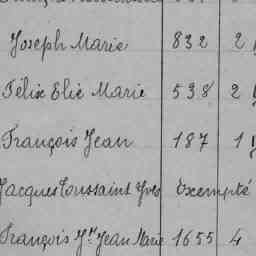 Joseph Marie 832 2
Félix Elie Marie 538 2
François Jean 187 1
Jacques Toussaint Yves Exempté
François Jean Marie 1655 4